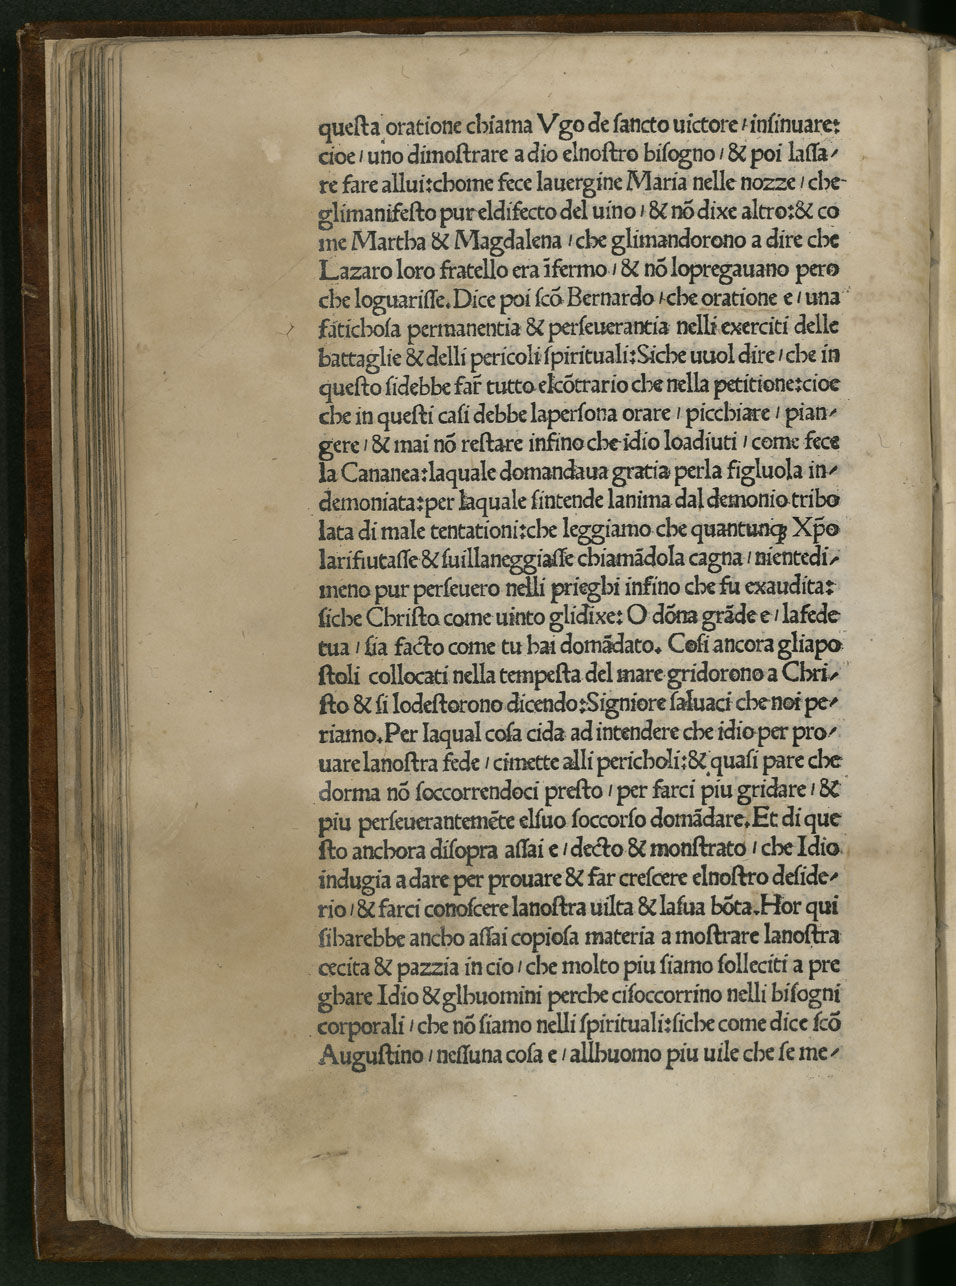 queſta oratione chiama Vgo de ſancto uictore / inſinuare:
cioe / uno dimoſtrare a dio elnoſtro biſogno / & poi laſſa-
re fare allui: chome fece lauergine Maria nelle nozze / che-
glimanifeſto pur eldifecto del uino / & nõ dixe altro: & co
me Martha & Magdalena / che glimandorono a dire che
Lazaro loro fratello era ĩfermo / & nõ lopregauano pero
che loguariſſe. Dice poi ſcõ Bernardo / che oratione e / una
fatichoſa permanentia & perſeuerantia nelli exerciti delle
battaglie & delli pericoli ſpirituali: Siche uuol dire / che in
queſto ſidebbe far̃ tutto elcõtrario che nella petitione: cioe
che in queſti caſi debbe laperſona orare / picchiare / pian-
gere / & mai nõ reſtare infino che idio loadiuti / come fece
la Cananea: laquale domandaua gratia perla figluola in-
demoniata: per laquale ſintende lanima dal demonio tribo
lata di male tentationi: che leggiamo che quantunqꝫ Xp̃o
larifiutaſſe & ſuillaneggiaſſe chiamãdola cagna / nientedi-
meno pur perſeuero nelli prieghi infino che fu exaudita:
ſiche Chriſto come uinto glidixe: O dõna grãde e / lafede
tua / ſia facto come tu hai domãdato. Coſi ancora gliapo
ſtoli collocati nella tempeſta del mare gridorono a Chri-
ſto & ſi lodeſtorono dicendo: Signiore ſaluaci che noi pe-
riamo. Per laqual coſa cida ad intendere che idio per pro-
uare lanoſtra fede / cimette alli pericholi: & quaſi pare che
dorma nõ ſoccorrendoci preſto / per farci piu gridare / &
piu perſeuerantemẽte elſuo ſoccorſo domãdare. Et di que
ſto anchora diſopra aſſai e / decto & monſtrato / che Idio
indugia a dare per prouare & far creſcere elnoſtro deſide-
rio / & farci conoſcere lanoſtra uilta & laſua bõta. Hor qui
ſiharebbe ancho aſſai copioſa materia a moſtrare lanoſtra
cecita & pazzia in cio / che molto piu ſiamo ſolleciti a pre
ghare Idio & glhuomini perche ciſoccorrino nelli biſogni
corporali / che nõ ſiamo nelli ſpirituali: ſiche come dice ſcõ
Auguſtino / neſſuna coſa e / allhuomo piu uile che ſe me-